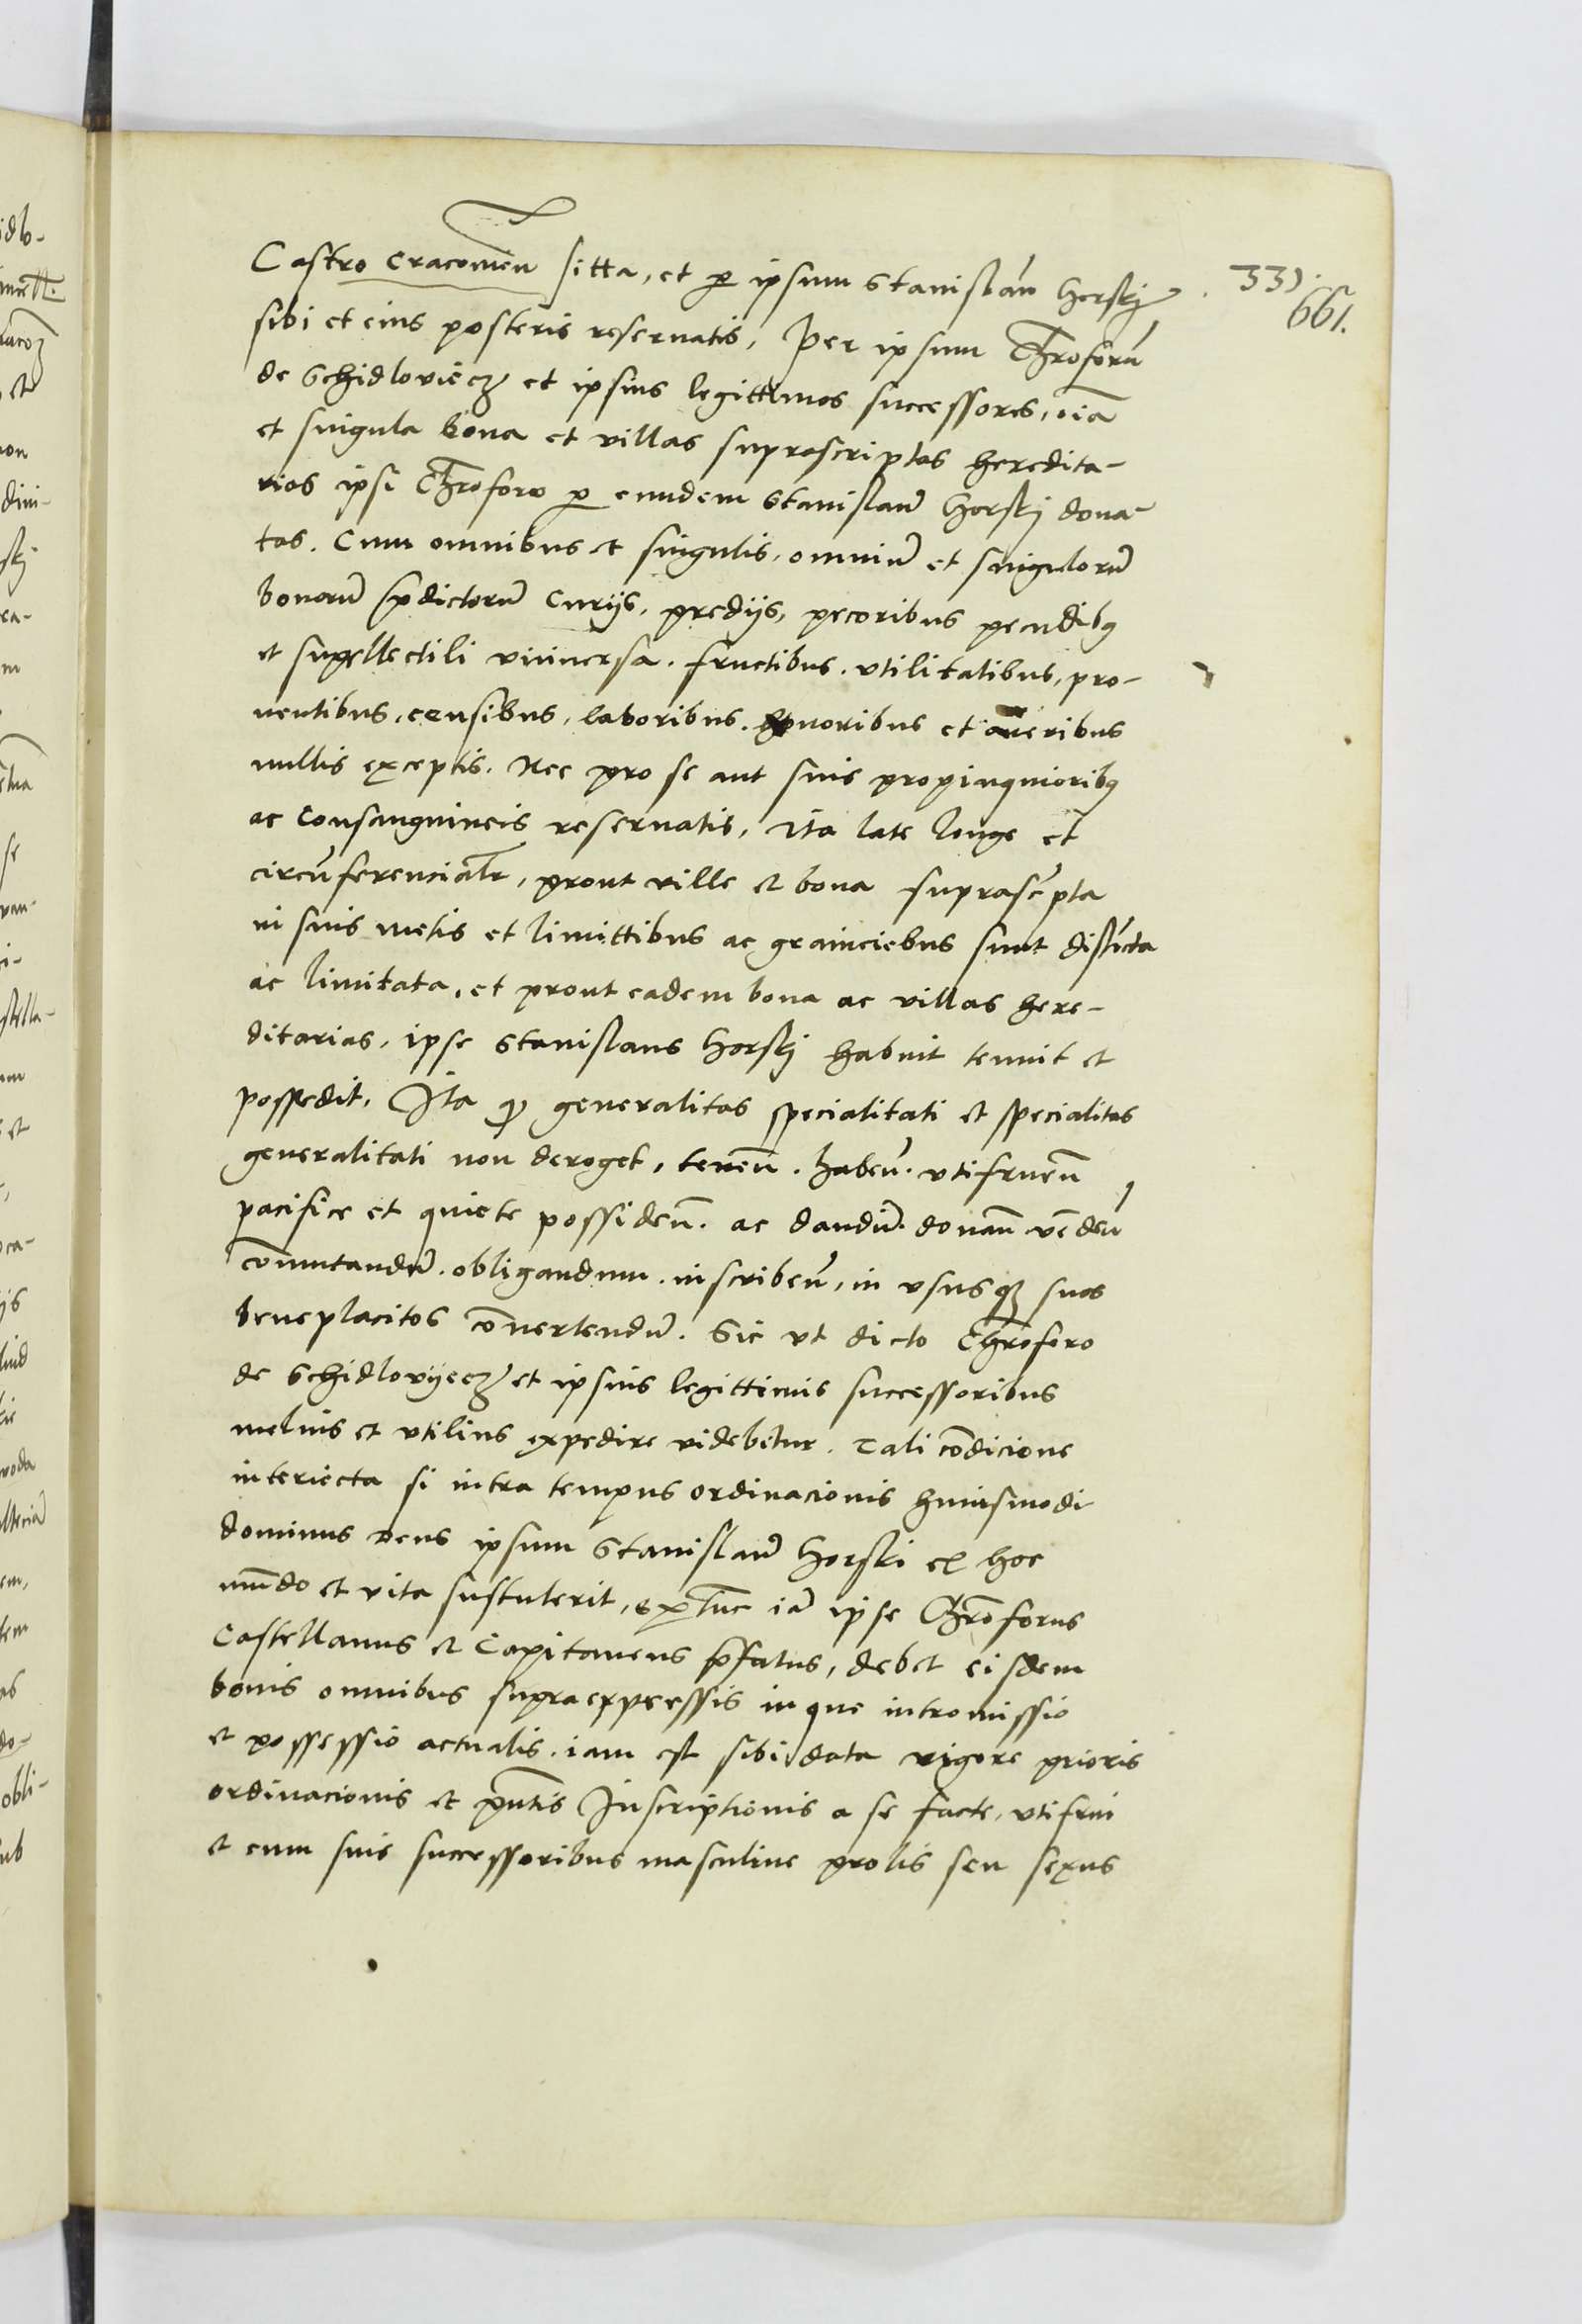 Castro Cracovien̄ sitta, et p̲ ipsum Stanislaū Horskj
331.
661.
sibi et eius posteris reseruatis, Per ipsum Chr̄oforū
de Schidloviecz et ipsius legittimos successores, oīa
et singula bona et villas suprascriptas heredita-
rias ipsi Chr̄oforo p̲ eundem Stanislaū Horskj dona-
tas. Cum omnibus et singulis, omniū et singulorū
bonorū p̄dictorū Curijs, predijs, pecoribus pecudibꝫ
et supellectili vniuersa. fructibus. vtilitatibus, pro-
uentibus, censibus, laboribus. honoribus et oneribus
nullis exceptis. Nec pro se aut suis propinquioribꝫ
ac Consanguineis reseruatis, ita late longe et
circūferencialr̄, prout ville et bona suprascʳpta
in suis metis et limittibus ac graniciebus sunt distīcta
ac limitata, et prout eadem bona ac villas here-
ditarias, ipse Stanislaus Horskj habuit tenuit et
possedit, Ita ꝙ generalitas specialitati et specialitas
generalitati non deroget, tenen̄. haben̄. vtifruen̄
pacifice et quiete possiden̄. ac dandū. donan̄ vēden̄
com̄utandū. obligandum. inscriben̄, in vsusqꝫ suos
beneplacitos cōuertendū. Sic vt dicto Chr̄oforo
de Schidlovyecz et ipsius legittimis successoribus
melius et vtilius expedire videbitur. Tali cōdicione
interiecta si intra tempus ordinacionis huiusmodi
dominus deus ipsum Stanislaū Horski ex hoc
mūdo et vita sustulerit, extūc iā ipse Chr̄oforus
Castellanus et Capitaneus p̄fatus, debet eisdem
bonis omnibus supraexpressis in que intromissio
et possessio actualis. iam est sibi data vigore prioris
ordinacionis et pn̄tis Inscriptionis a se facte, vtifrui
et cum suis successoribus masculine prolis seu sexus